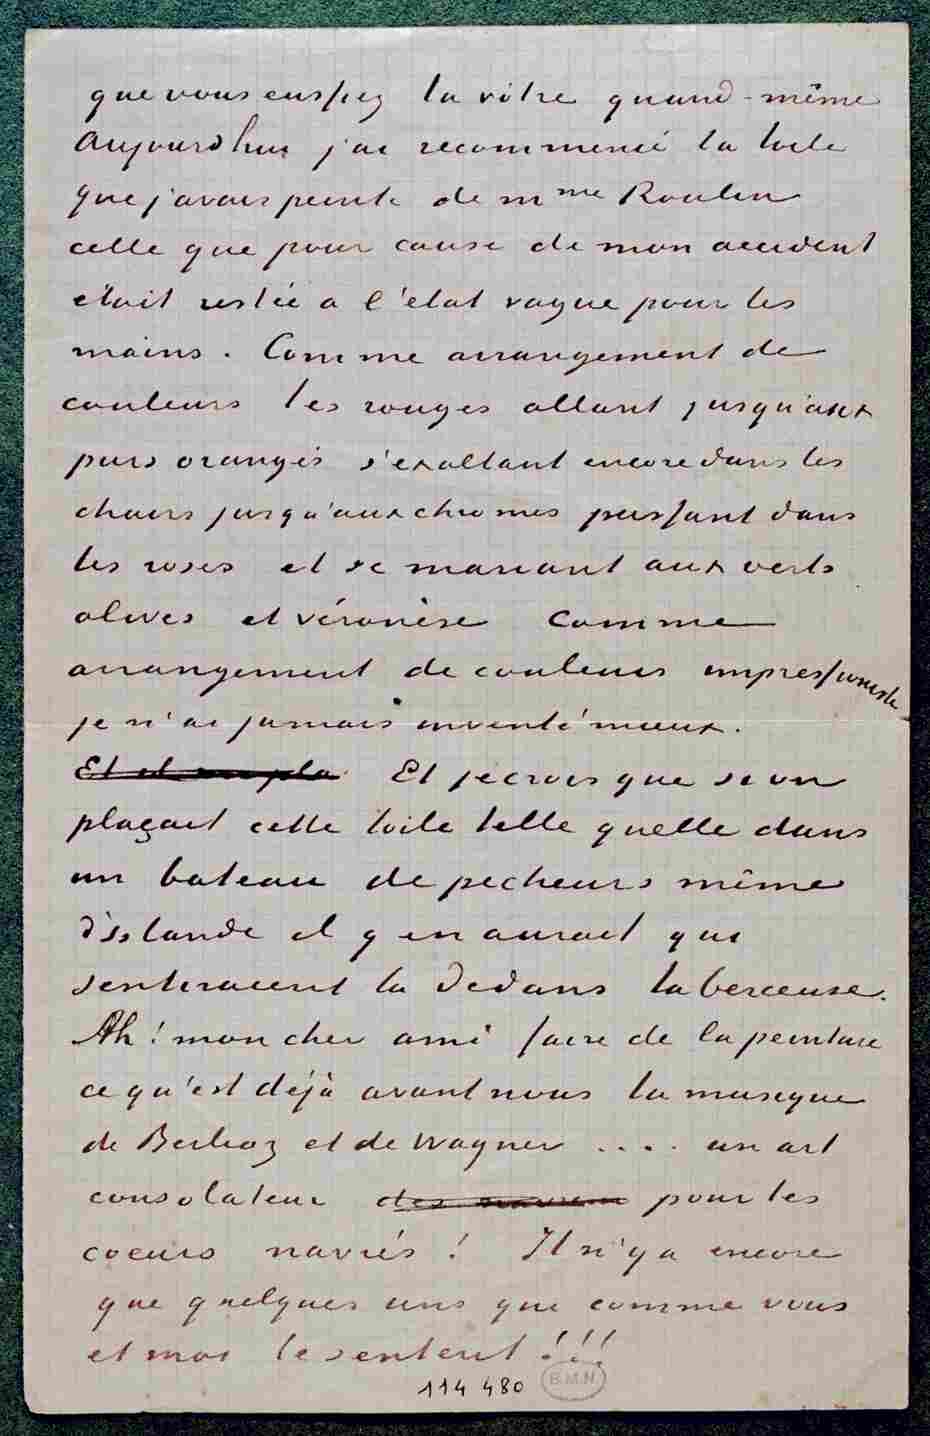 que vous eussiez la vôtre quand-même
Aujourdhui j'ai recommencé la toile
que j'avais peinte de mme Roulin
celle que pour cause de mon accident
etait restée a l'état vague pour les
mains. Comme arrangement de
couleurs les rouges allant jusqu'aux
purs orangés s'exaltant encore dans les
chairs jusqu'aux chromes passant dans
les roses et se mariant aux verts
olives et véronèse Comme
arrangement de couleurs impressioniste
je n'ai jamais inventé mieux.
Et je crois que si on
plaçait cette toile telle quelle dans
un bateau de pecheurs même
d'islande il y en aurait qui
sentiraient la dedans la berceuse.
Ah! mon cher ami faire de la peinture
ce qu'est déjà avant nous la musique
de Berlioz et de Wagner .... un art
consolateur pour les
coeurs navrés! Il n'y a encore
que quelques uns qui comme vous
et moi le sentent!!!
114 480 B.M.N.